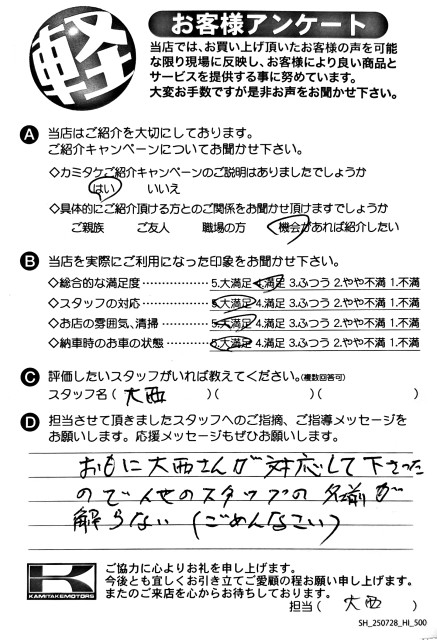 軽
お客様アンケート
当店では、お買い上げ頂いたお客様の声を可能
な限り現場に反映し、お客様により良い商品と
サービスを提供する事に努めています。
大変お手数ですが是非お声をお聞かせ下さい。
A 当店はご紹介を大切にしております。
ご紹介キャンペーンについてお聞かせ下さい。
◇カミタケご紹介キャンペーンのご説明はありましたでしょうか
はい いいえ
◇具体的にご紹介頂ける方とのご関係をお聞かせ頂けますでしょうか
ご親族 ご友人 職場の方 機会があれば紹介したい
B 当店を実際にご利用になった印象をお聞かせ下さい。
◇総合的な満足度 ・・・・・・・・・・・・ 5.大満足 4.満足 3.ふつう 2.やや不満 1.不満
◇スタッフの対応 ・・・・・・・・・・・・ 5.大満足 4.満足 3.ふつう 2.やや不満 1.不満
◇お店の雰囲気、清掃 ・・・・・・・・ 5.大満足 4.満足 3.ふつう 2.やや不満 1.不満
◇納車時のお車の状態 ・・・・・・・・ 5.大満足 4.満足 3.ふつう 2.やや不満 1.不満
C 評価したいスタッフがいれば教えてください。(複数回答可)
スタッフ名 ( 大西 )( )( )
D 担当させて頂きましたスタッフへのご指摘、ご指導メッセージを
お願いします。応援メッセージもぜひお願いします。
おもに大西さんが対応して下さった
ので他のスタッフの名前が
解らない(ごめんなさい)
KAMITAKEMOTORS
ご協力に心よりお礼を申し上げます。
今後とも宜しくお引き立てご愛顧の程お願い申し上げます。
またのご来店を心からお待ちしております。
担当 ( 大西 )
SH_250728_HI_500